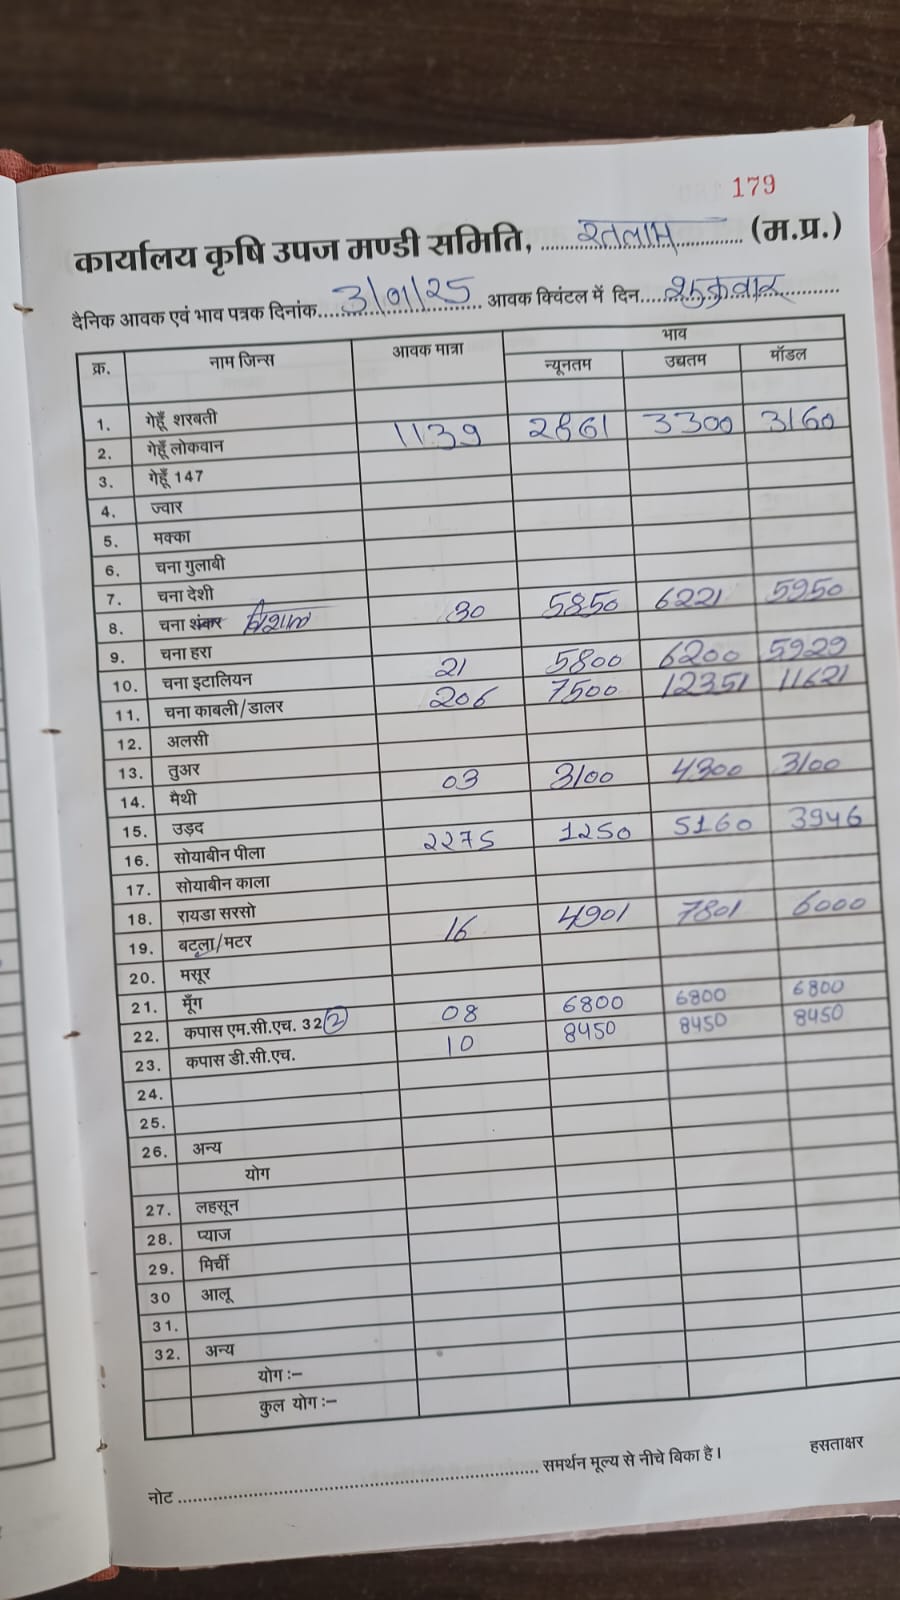 179
कार्यालय कृषि उपज मण्डी समिति, रतलाम (म.प्र.)
दैनिक आवक एवं भाव पत्रक दिनांक 3/01/25 आवक क्विंटल में दिन शुक्रवार
क्र. नाम जिन्स आवक मात्रा भाव
न्यूनतम उच्चतम मॉडल
1. गेहूँ शरबती
2. गेहूँ लोकवान 1139 2861 3300 3160
3. गेहूँ 147
4. ज्वार
5. मक्का
6. चना गुलाबी
7. चना देशी
8. चना शंकर विशाल 30 5850 6221 5950
9. चना हरा
10. चना इटालियन 21 5800 6200 5929
11. चना काबली/डालर 206 7500 12351 11621
12. अलसी
13. तुअर
14. मैथी 03 3100 4300 3100
15. उड़द
16. सोयाबीन पीला 2275 1250 5160 3946
17. सोयाबीन काला
18. रायडा सरसो
19. बटला/मटर 16 4901 7801 6000
20. मसूर
21. मूँग
22. कपास एम.सी.एच. 32 2 08 6800 6800 6800
23. कपास डी.सी.एच. 10 8450 8450 8450
24.
25.
26. अन्य
योग
27. लहसून
28. प्याज
29. मिर्ची
30 आलू
31.
32. अन्य
योग :-
कुल योग :-
नोट समर्थन मूल्य से नीचे बिका है। हसताक्षर